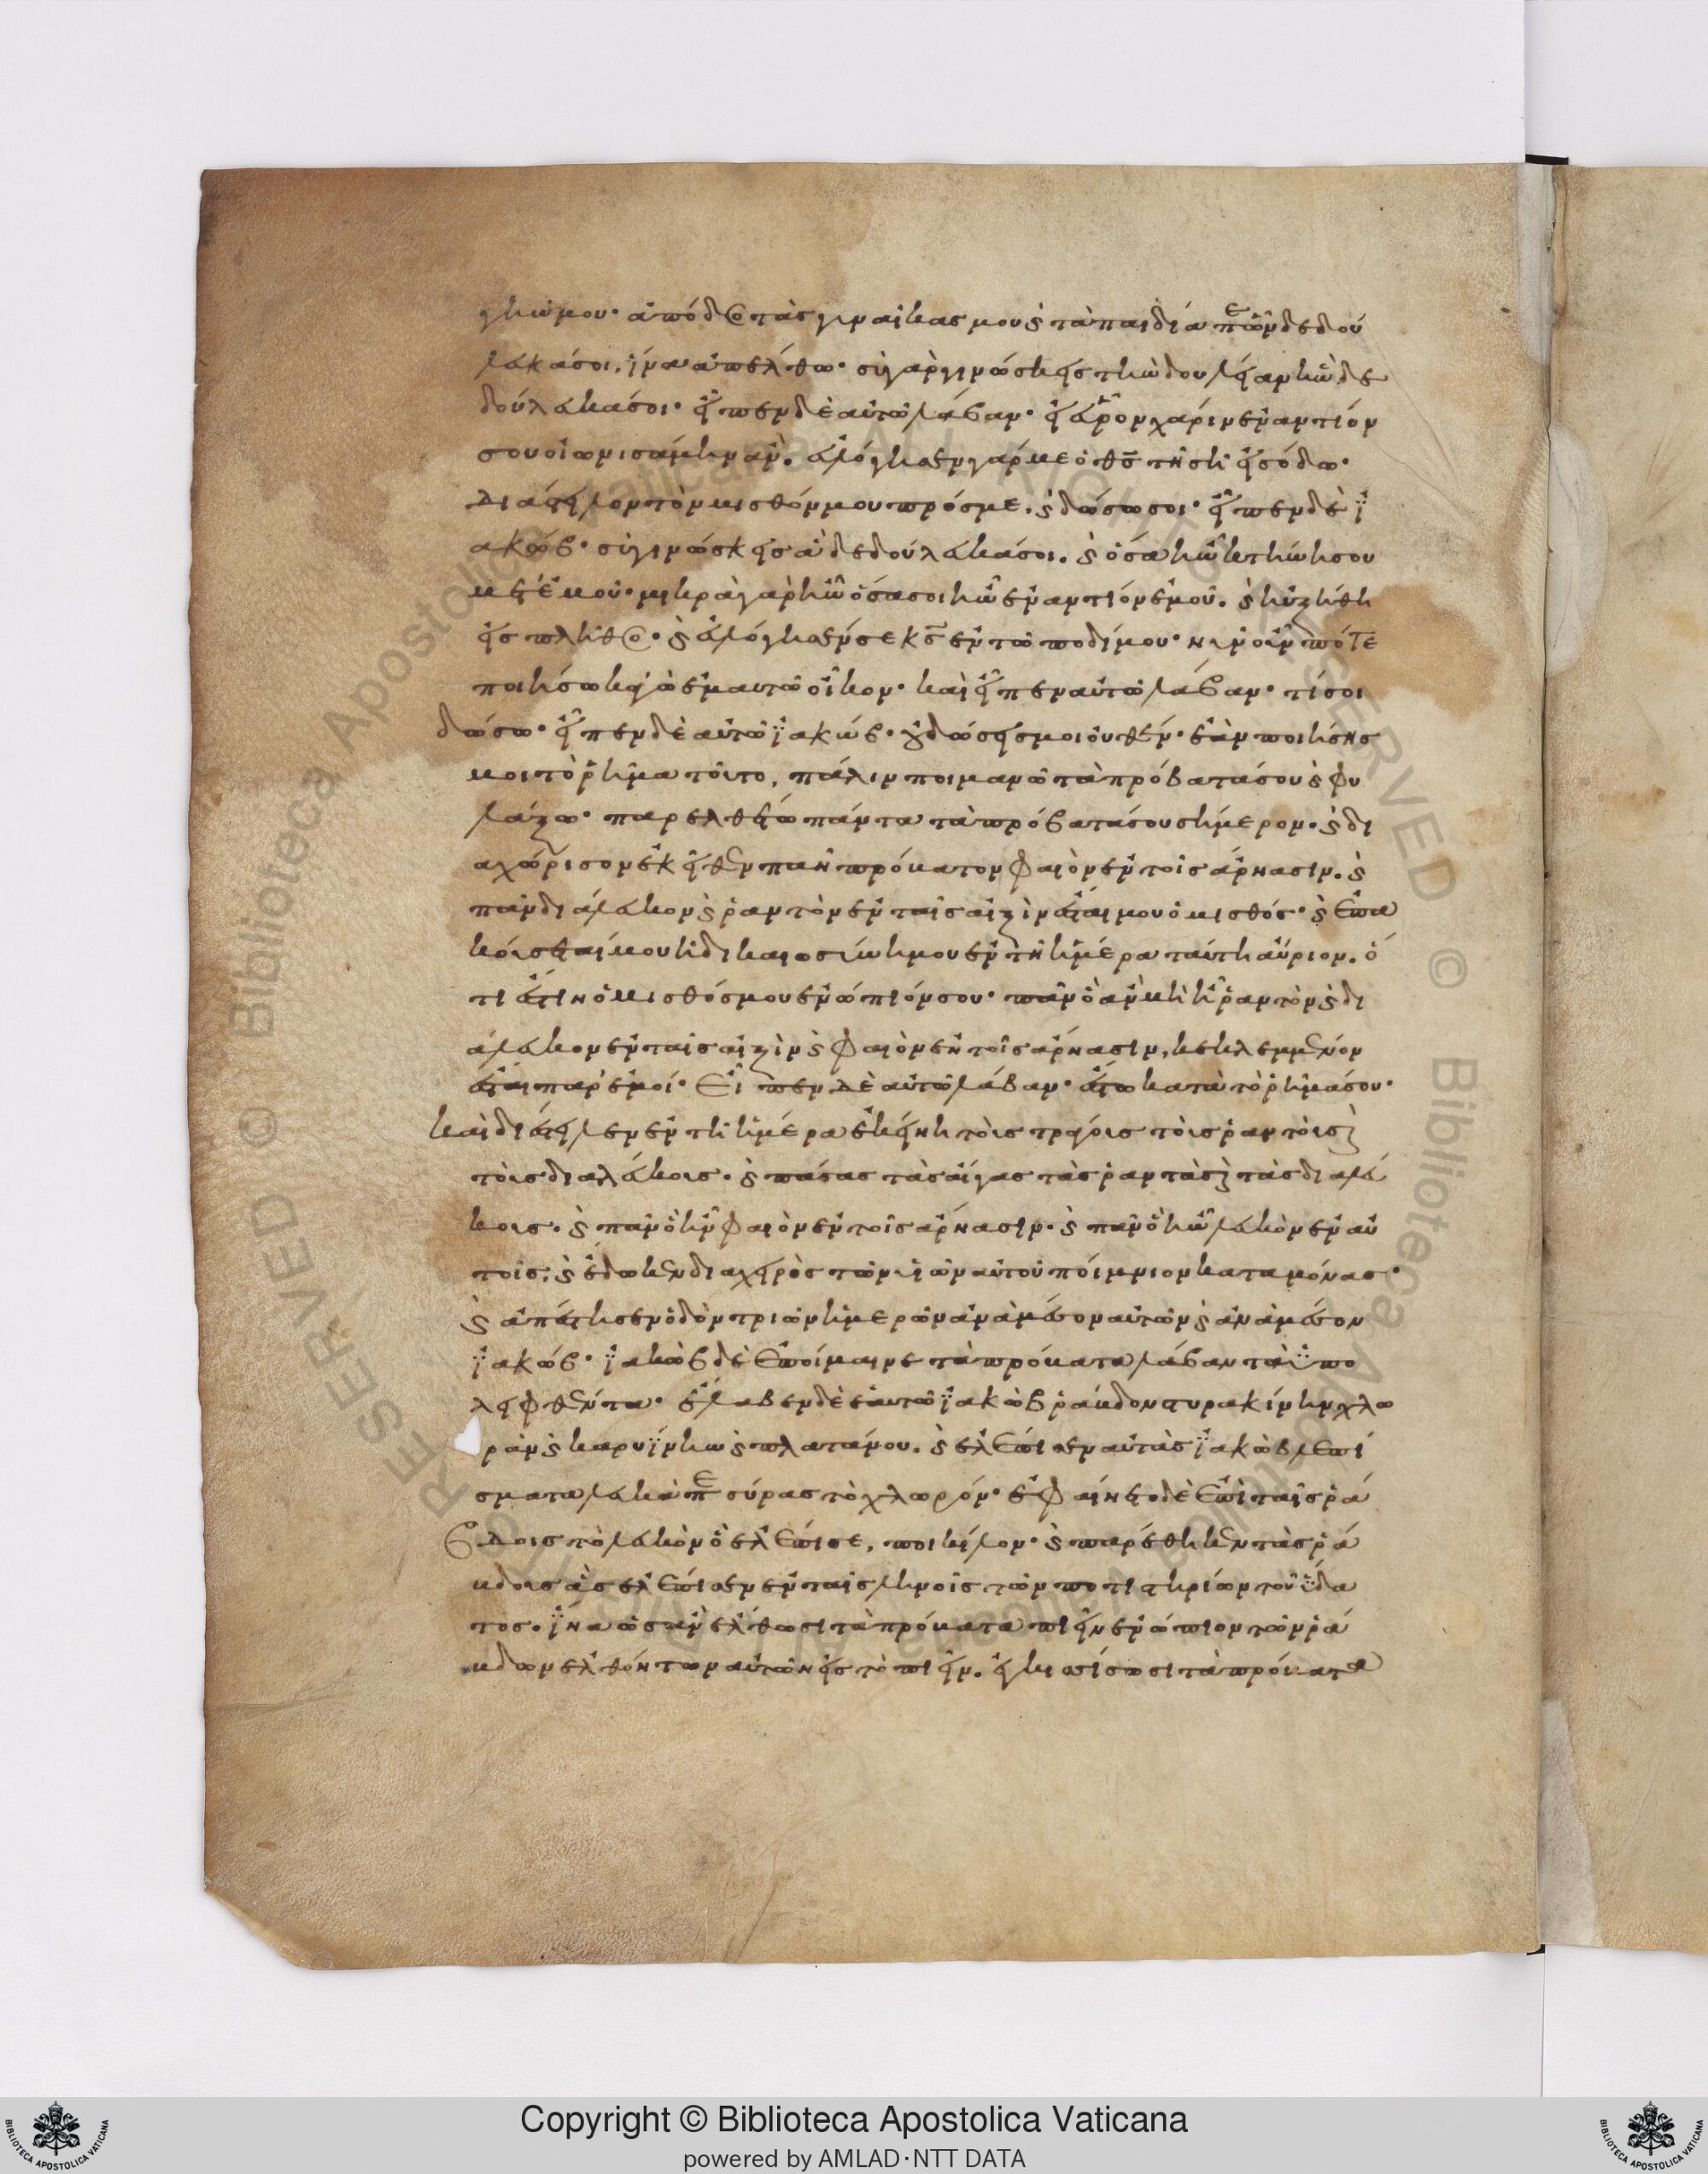 γῆν μου· ἀπόδος τὰς γυναῖκας μου καὶ τὰ παιδία περὶ ὧν δεδού
λευκά σοι, ἵνα ἀπέλθω· σὺ γὰρ γινώσκεις τὴν δουλείαν ἣν δε
δούλευκά σοι· εἶπεν δὲ αὐτῷ λάβαν· εἰ εὗρον χάριν ἐναντίον
σου οἰωνισάμην ἄν. εὐλόγησεν γάρ με ὁ θς τῇ σῇ εἰσόδω·
διάστειλον τὸν μισθόν μου πρός με. καὶ δώσω σοι· εἶπεν δὲ ϊ
ακώβ· σὺ γινώσκεις ἃ δεδούλευκά σοι. καὶ ὅσα ἦν κτήνη σου
μετ' ἐμοῦ· μικρὰ γὰρ ἦν ὅσα σοι ἦν ἐναντίον ἐμοῦ. καὶ ηὐξήθη
εἰς πλῆθος· καὶ εὐλόγησέν σε κς ἐν τῷ ποδί μου· νῦν οὖν πότε
ποιήσω κἀγὼ ἐμαυτῷ οἶκον· καὶ εἶπεν αὐτῷ λάβαν· τί σοι
δώσω· εἶπεν δὲ αὐτῷ ϊακώβ· οὐ δώσεις μοι οὐθέν· ἐὰν ποιήσης
μοι τὸ ῥῆμα τοῦτο, πάλιν ποιμανῶ τὰ πρόβατά σου καὶ φυ
λάξω· παρελθέτω πάντα τὰ πρόβατά σου σήμερον· καὶ δι
αχώρισον ἐκεῖθεν πᾶν πρόβατον φαιὸν ἐν τοῖς ἀρνάσιν. καὶ
πᾶν διάλευκον καὶ ῥαντὸν ἐν ταῖς αἰξὶν ἔσται μου ὁ μισθός· καὶ ἐπα
κούσεταί μου ἡ δικαιοσύνη μου ἐν τῇ ἡμέρα ταύτη αὔριον. ὅ
τι ἐστὶν ὁ μισθός μου ἐνώπιόν σου· πᾶν ὃ ἂν μὴ ἦ ῥαντὸν καὶ δι
άλευκον ἐν ταῖς αἰξὶν καὶ φαιὸν ἐν τοῖς ἀρνάσιν, κεκλεμμένον
ἔσται παρ' ἐμοί· εἶπεν δὲ αὐτῷ λάβαν· ἔστω κατὰ τὸ ῥῆμά σου·
καὶ διέστειλεν ἐν τῇ ἡμέρα ἐκείνη τοὺς τράγους τοὺς ῥαντοὺς καὶ
τοὺς διαλεύκους. καὶ πάσας τὰς αἶγας τὰς ῥαντὰς καὶ τὰς διαλεύ
κους. καὶ πᾶν ὃ ἦν φαιὸν ἐν τοῖς ἀρνάσιν. καὶ πᾶν ὃ ἦν λευκὸν ἐν αὐ
τοῖς, καὶ ἔδωκεν διὰ χειρὸς τῶν υἱῶν αὐτοῦ ποίμνιον καταμόνας·
καὶ ἀπέστησεν ὁδὸν τριῶν ἡμερῶν ἀνὰ μέσον αὐτῶν καὶ ἀνὰ μέσον
ϊακώβ· ϊακὼβ δὲ ἐποίμαινε τὰ πρόβατα λάβαν τὰ ϋπο
λειφθέντα· ἔλαβεν δὲ ἑαυτῷ ϊακὼβ ῥάβδον στυρακίνην χλω
ρὰν καὶ καρυΐνην καὶ πλατάνου. καὶ ἐλέπισεν αὐτὰς ϊακὼβ λεπί
σματα λευκὰ περισύρας τὸ χλωρόν· ἐφαίνετο δὲ ἐπὶ ταῖς ῥά
βδοις τὸ λευκὸν ὃ ἐλέπισε, ποικίλον· καὶ παρέθηκεν τὰς ῥά
βδους ἃς ἐλέπισεν ἐν ταῖς ληνοῖς τῶν ποτιστηρίων τοῦ ὕδα
τος. ϊνα ὡς ἂν ἔλθωσι τὰ πρόβατα πιεῖν ἐνώπιον τῶν ῥά
βδων ἐλθόντων αὐτῶν εἰς τὸ πιεῖν. ἐγκισσίσωσι τὰ πρόβατα